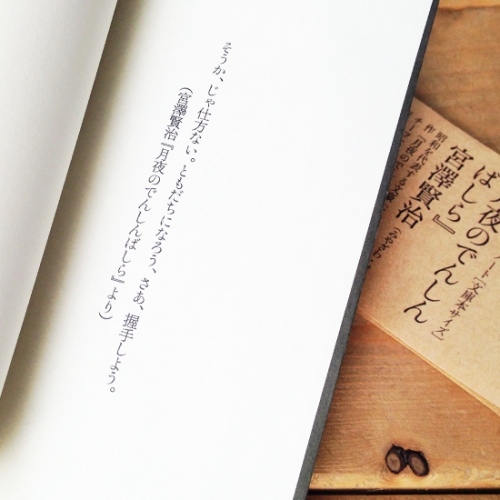 そうか、じゃ仕方ない。ともだちになろう、さあ、握手しよう。
（宮澤賢治『月夜のでんしんばしら』より）
ノート［文庫本サイズ］
月夜のでんしん
ばしら』
宮澤賢治
作
昭和を代表する文